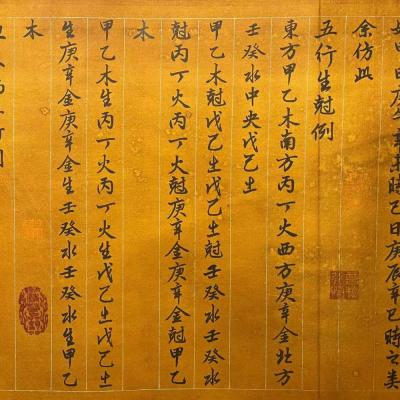 甲日庚午辛未時乙日庚辰辛巳時之类
余仿此
五行生尅例
東方甲乙木南方丙丁火西方庚辛金北方
壬癸水中央戊己土
甲乙木尅戊己土戊己土尅壬癸水壬癸水
尅丙丁火丙丁火尅庚辛金庚辛金尅甲乙
木
甲乙木生丙丁火丙丁火生戊己土戊己土
生庚辛金庚辛金生壬癸水壬癸水生甲乙
木